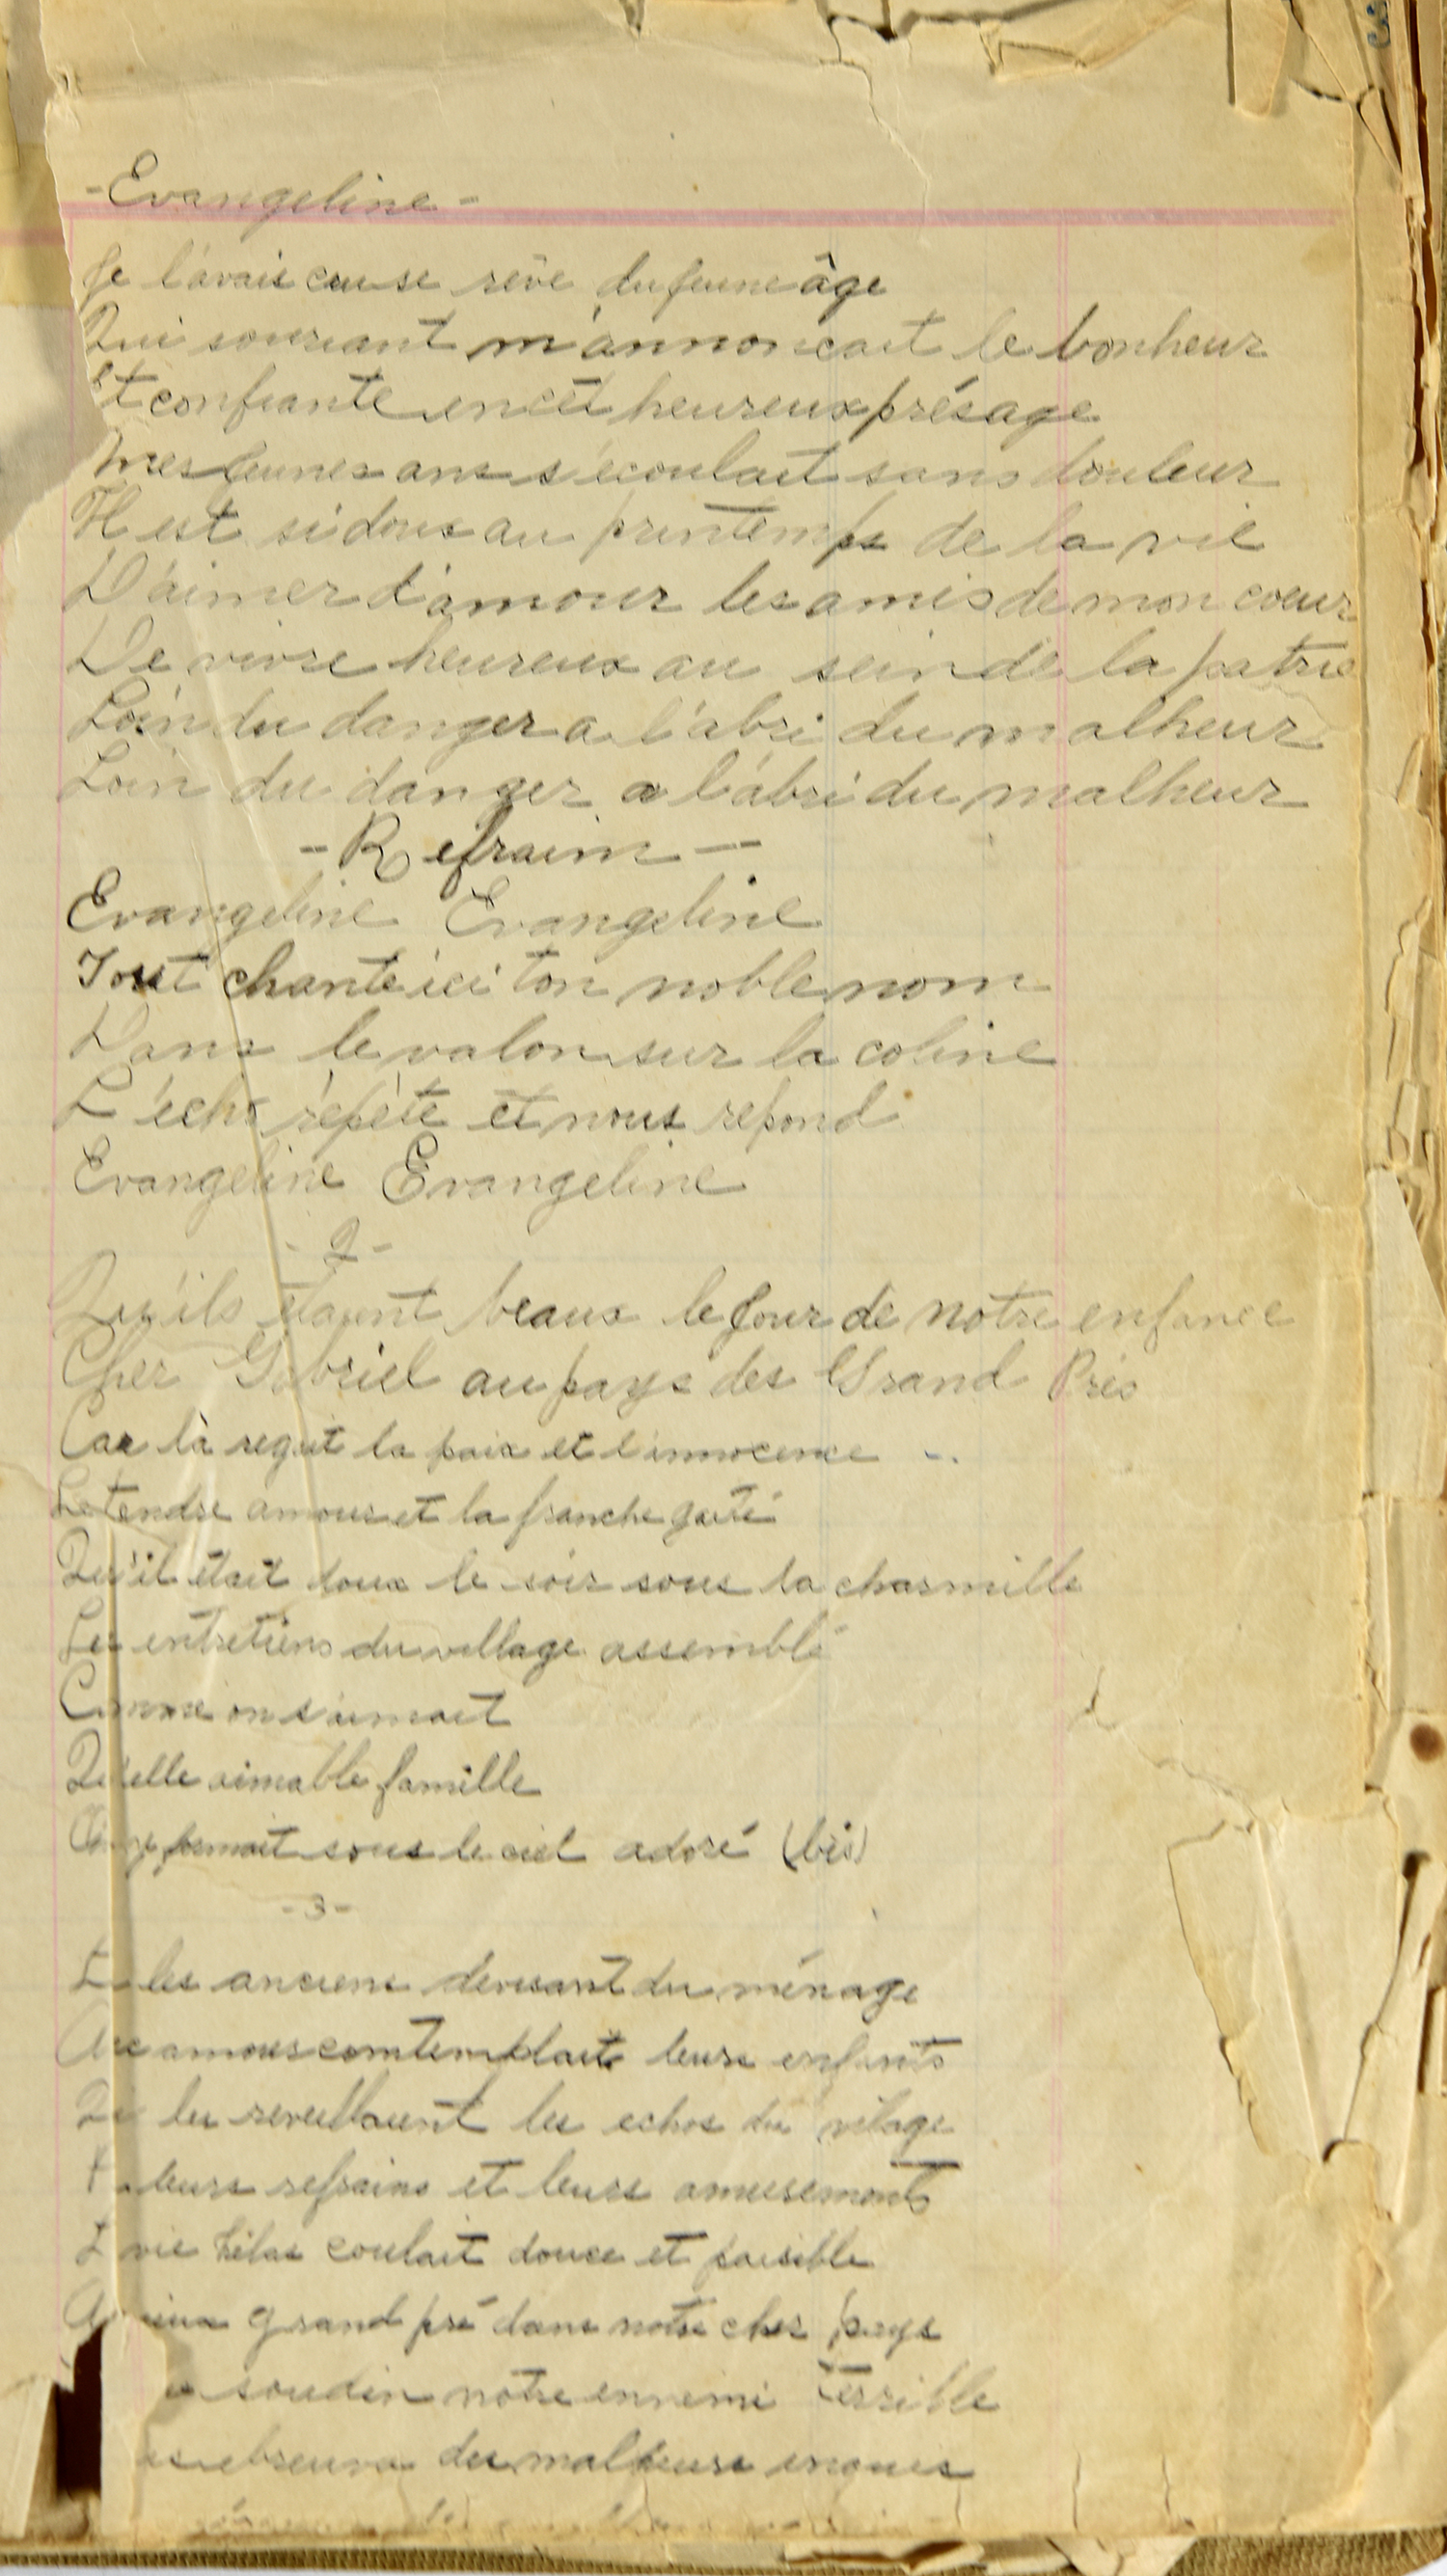 -Evangeline-
Je l'avais cru se rêve du jeune âge
Qui souriant m'annoncait le bonheur
Et confiante en cet heureux présage
Mes jeunes ans s'écoulait sans douleur
Il est si doux au printemps de la vie
D'aimer d'amour les amis de mon coeur
De vivre heureux au sein de la patrie
Loin du danger a l'abri du malheur
Loin du danger a l'abri du malheur
-Refraim-
Evangeline Evangeline
Tout chante ici ton noble nom
Dans le valon sur la coline
L'écho répète et nous repond
Evangeline Evangeline
-2-
Qu'ils étaient beaux le jour de notre enfance
Cher Gabriel au pays des Grand Prés
Car là regnt la paix et l'innocence
Le tendre amour et la franche gaité
Qu'il était doux le soir sous la charmille
Les entretiens du village assemblé
Comme on s'aimait
Quelle aimable famille
formait sous le ciel adoré (bis)
-3-
les anciens devisant du ménage
amour comtemplait leurs enfants
reveillaient les echos du vilage
leurs refrains et leurs amusements
vie hélas coulait douce et paisible
grand pré dans notre cher pays
soudin notre ennemi terrible
abreuva des malheurs inouis